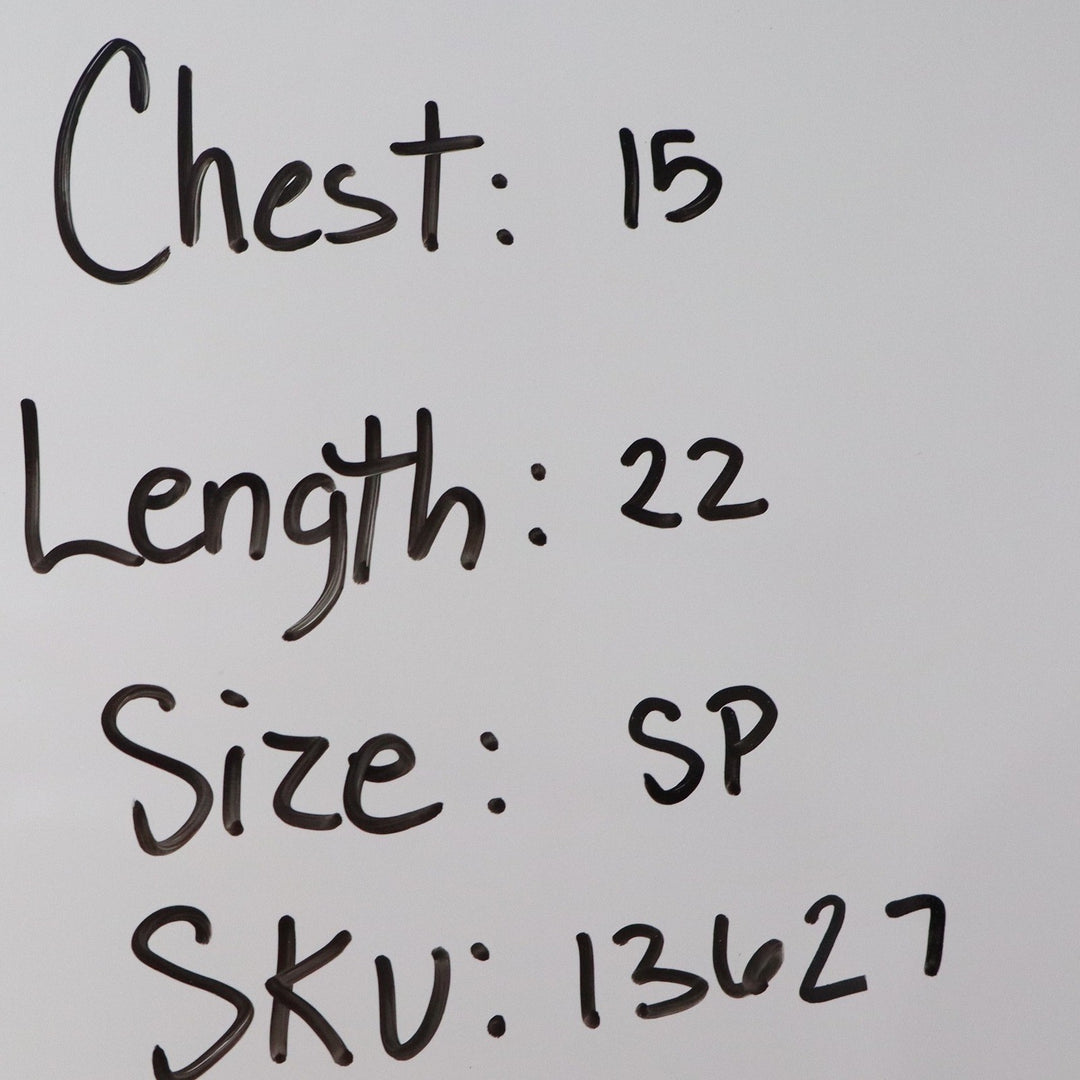 Chest: 15
Length: 22
Size: SP
SKU: 13627